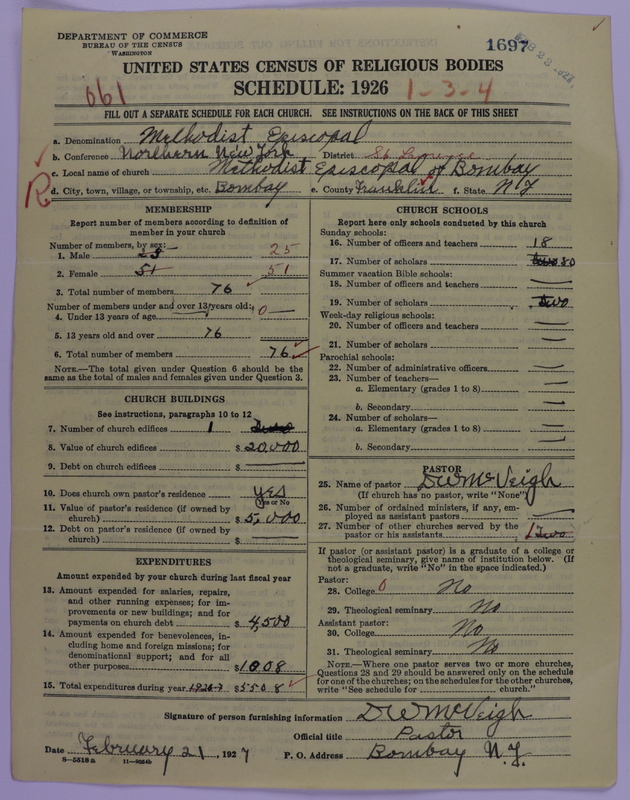 DEPARTMENT OF COMMERCE
BUREAU OF THE CENSUS
WASHINGTON
1697
UNITED STATES CENSUS OF RELIGIOUS BODIES
SCHEDULE: 1926
661
1-3-4
FILL OUT A SEPARATE SCHEDULE FOR EACH CHURCH. SEE INSTRUCTIONS ON THE BACK OF THIS SHEET
a. Denomination Methodist Episcopal
b. Conference Northern New York District St. Lawrence
c. Local name of church Methodist Episcopal of Bombay
R
d. City, town, village, or township, etc. Bombay e. County Franklin f. State N.Y
MEMBERSHIP
Report number of members according to definition of
member in your church
Number of members, by sex:
1. Male 25 25
2. Female 51 51
3. Total number of members 76
Number of members under and over 13 years old:
4. Under 13 years of age 0
5. 13 years old and over 76
6. Total number of members 76
NOTE.—The total given under Question 6 should be
same as the total of males and females given under Question 3.
CHURCH BUILDINGS
See instructions, paragraphs 10 to 12
7. Number of church edifices 1
8. Value of church edifices $ 20,000
9. Debt on church edifices $
10. Does church own pastor's residence Yes
(Yes or No
11. Value of pastor's residence (if owned by
church) $ 5,000
12. Debt on pastor's residence (if owned by
church) $
EXPENDITURES
Amount expended by church during last fiscal year
13. Amount expended for salaries, repairs,
and other running expenses; for im-
provements or new buildings; and for
payments on church debt $ 4,500
14. Amount expended for benevolences, in-
cluding home and foreign missions; for
denominational support; and for all
other purposes $ 1008
15. Total expenditures during year $ 5508
CHURCH SCHOOLS
Report here only schools conducted by this church
Sunday schools:
16. Number of officers and teachers 18
17. Number of scholars two 80
Summer vacation Bible schools:
18. Number of officers and teachers
19. Number of scholars two
Week-day religious schools:
20. Number of officers and teachers
21. Number of scholars
Parochial schools:
22. Number of administrative officers
23. Number of teachers—
a. Elementary (grades 1 to 8)
b. Secondary
24. Number of scholars—
a. Elementary (grades 1 to 8)
b. Secondary
PASTOR
25. Name of pastor D W McVeigh
(If church has no pastor, write "None")
26. Number of ordained ministers, if any, em-
ployed as assistant pastors
27. Number of other churches served by the
pastor or his assistants 1 Two
If pastor (or assistant pastor) is a graduate of a college or
theological seminary, give name of institution below. (If
not a graduate, write "No" in the space indicated.)
Pastor:
28. College 0 No
29. Theological seminary No
Assistant pastor:
30. College No
31. Theological seminary No
NOTE.—Where one pastor serves two or more churches,
Questions 28 and 29 should be answered only on the schedule
for one of the churches; on the schedules for the other churches,
write "See schedule for church."
Signature of person furnishing information D W McVeigh
Official title Pastor
Date February 21, 1927 P. O. Address Bombay N.Y.
8—5518a